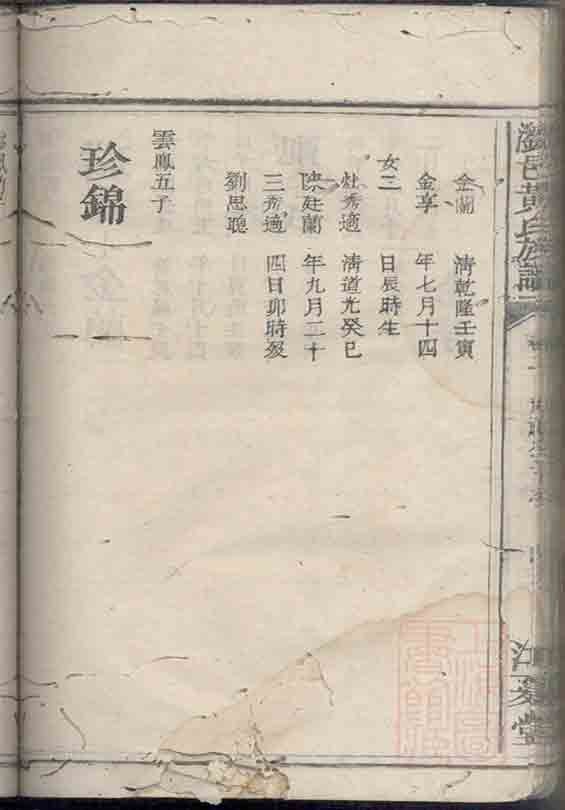 黃氏族譜
江夏堂
金蘭 清乾隆壬寅
金享 年七月十四
女二 日辰時生
灶秀適 清道光癸巳
陳廷蘭 年九月二十
三秀適 四日卯時歿
劉思聰
雲鳳五子
珍錦